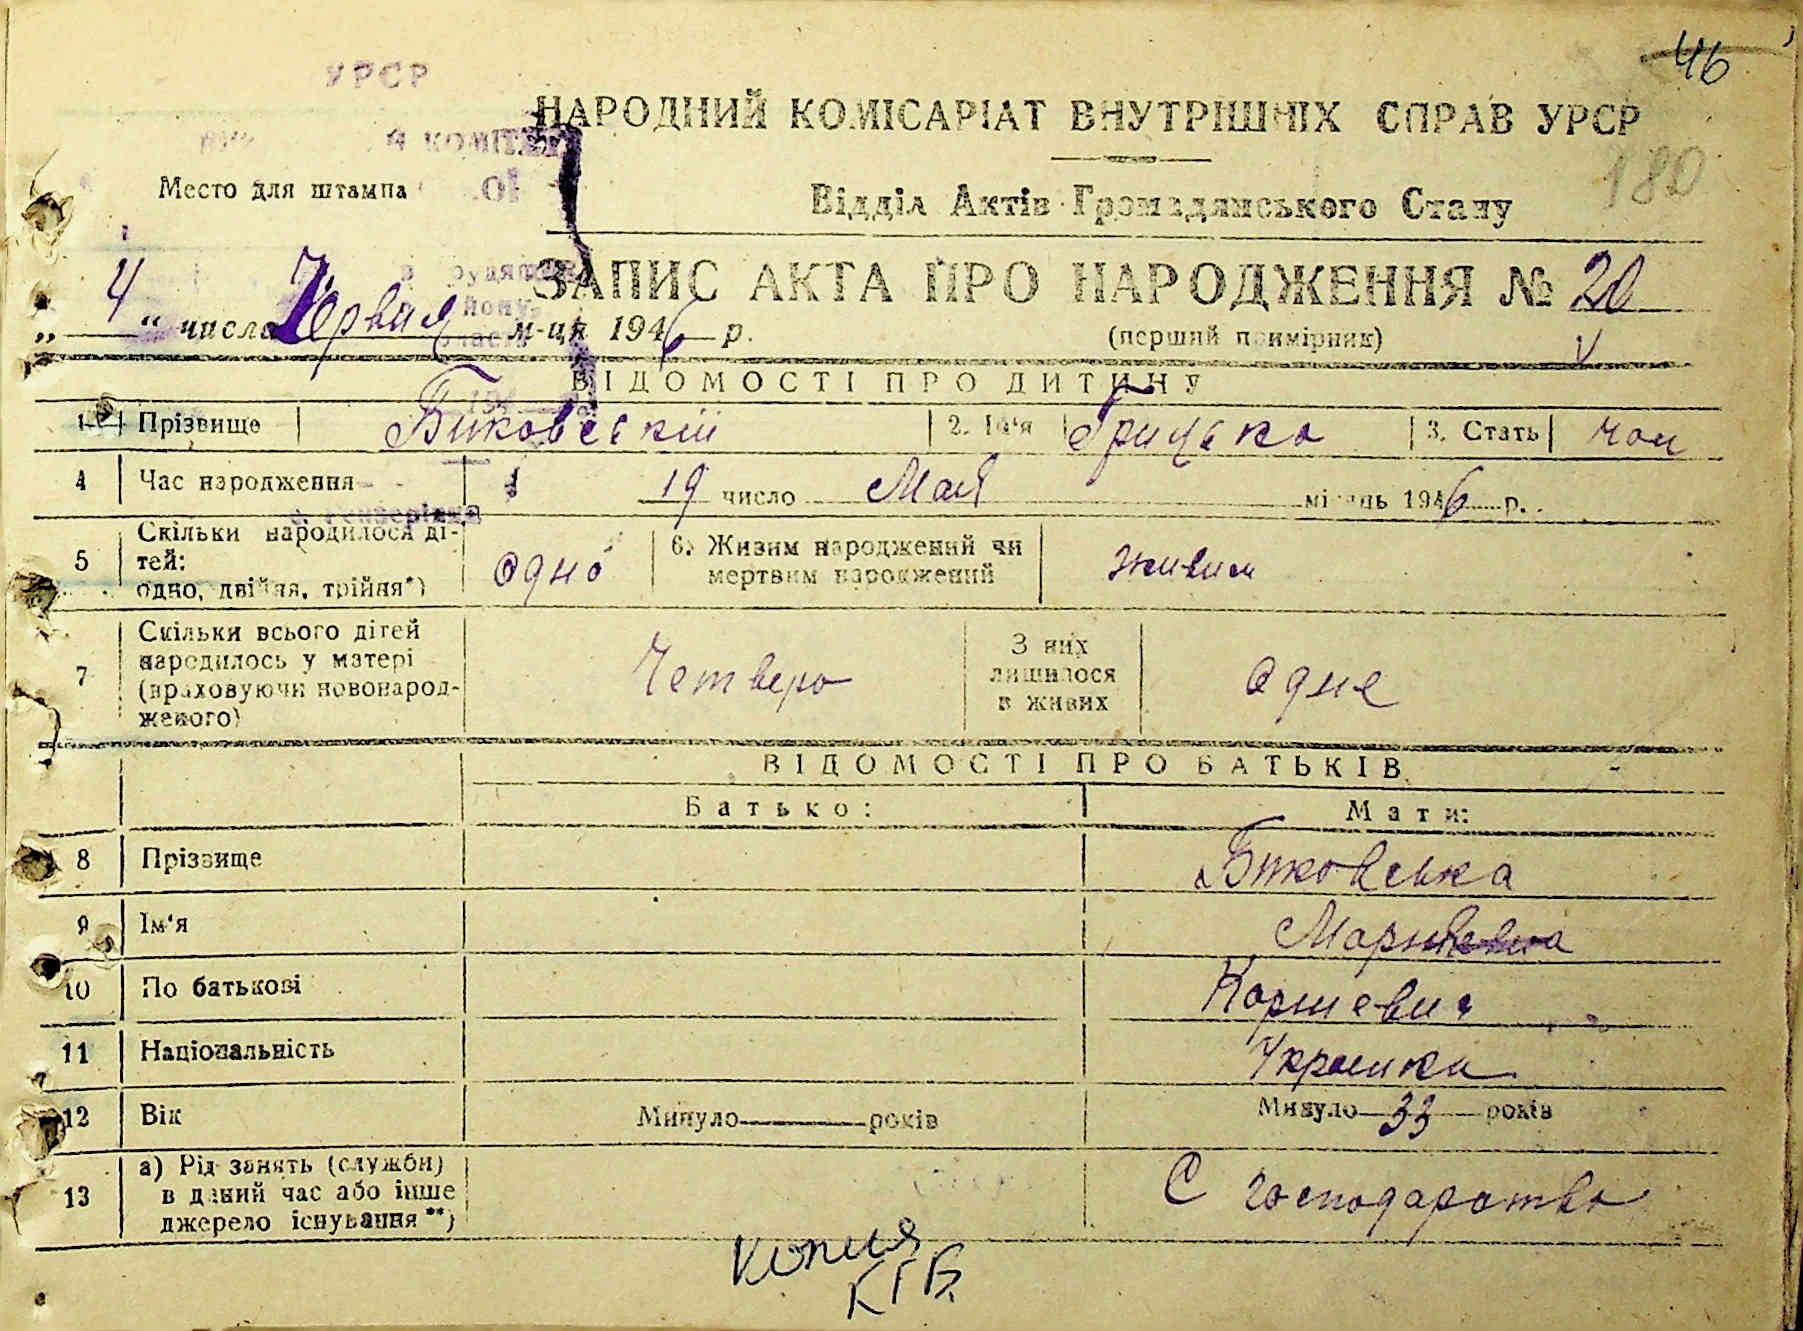 46
УРСР
НАРОДНИЙ КОМІСАРІАТ ВНУТРІШНІХ СПРАВ УРСР
180
Место для штампа
Відділ Актів Громадянського Стану
ЗАПИС АКТА ПРО НАРОДЖЕННЯ № 20
„ 4 “ числа Червня м-ця 1946 р.
(перший примірник)
ВІДОМОСТІ ПРО ДИТИНУ
1 Прізвище Биковський 2. Ім'я Грицько 3. Стать чол
4 Час народження 19 число Мая місяць 1946 р.
5 Скільки народилося ді-
тей:
одно, двійня, трійня*) одно
6. Живим народжений чи
мертвим народжений живим
7 Скільки всього дітей
народилось у матері
(враховуючи новонарод-
женого) Четверо
З них
лишилося
в живих одне
ВІДОМОСТІ ПРО БАТЬКІВ
Батько: Мати:
8 Прізвище Биковська
9 Ім'я
10 По батькові
11 Національність Українка
12 Вік Минуло років Минуло 33 років
13 а) Рід занять (служби)
в даний час або інше
джерело існування**) С господарство
копия
КГБ.